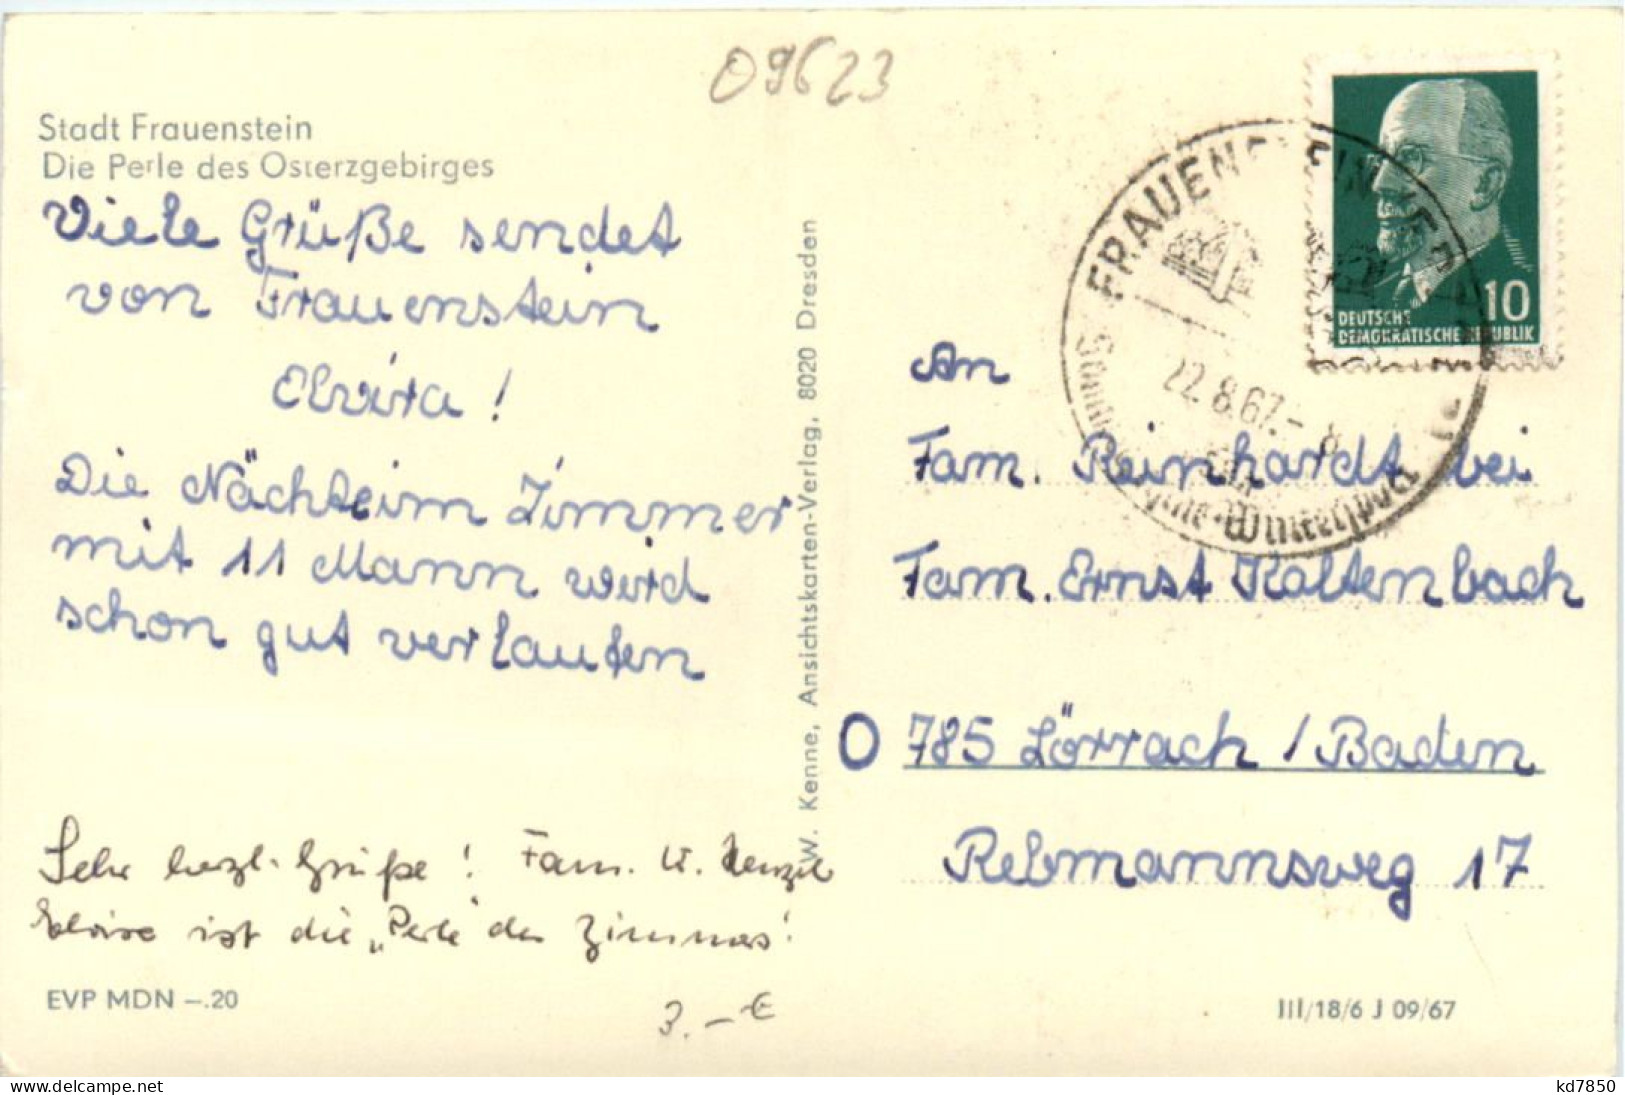 09623
Stadt Frauenstein
Die Perle des Osterzgebirges
Viele Grüße sendet
von Frauenstein
Elvira!
Die Nächte im Zimmer
mit 11 Mann werd
schon gut verlaufen
Sehr herzl. Grüße! Fam. W.
ist die „Perle" des Zimmers!
EVP MDN –.20
3.–€
W. Kenne, Ansichtskarten-Verlag, 8020 Dresden
FRAUENSTEIN
22.8.67.–8
Wintersport
10
DEUTSCHE
DEMOKRATISCHE REPUBLIK
An
Fam. Reinhardt bei
Fam. Ernst Kaltenbach
O 785 Lörrach / Baden
Rebmannsweg 17
III/18/6 J 09/67
www.delcampe.net
kd7850